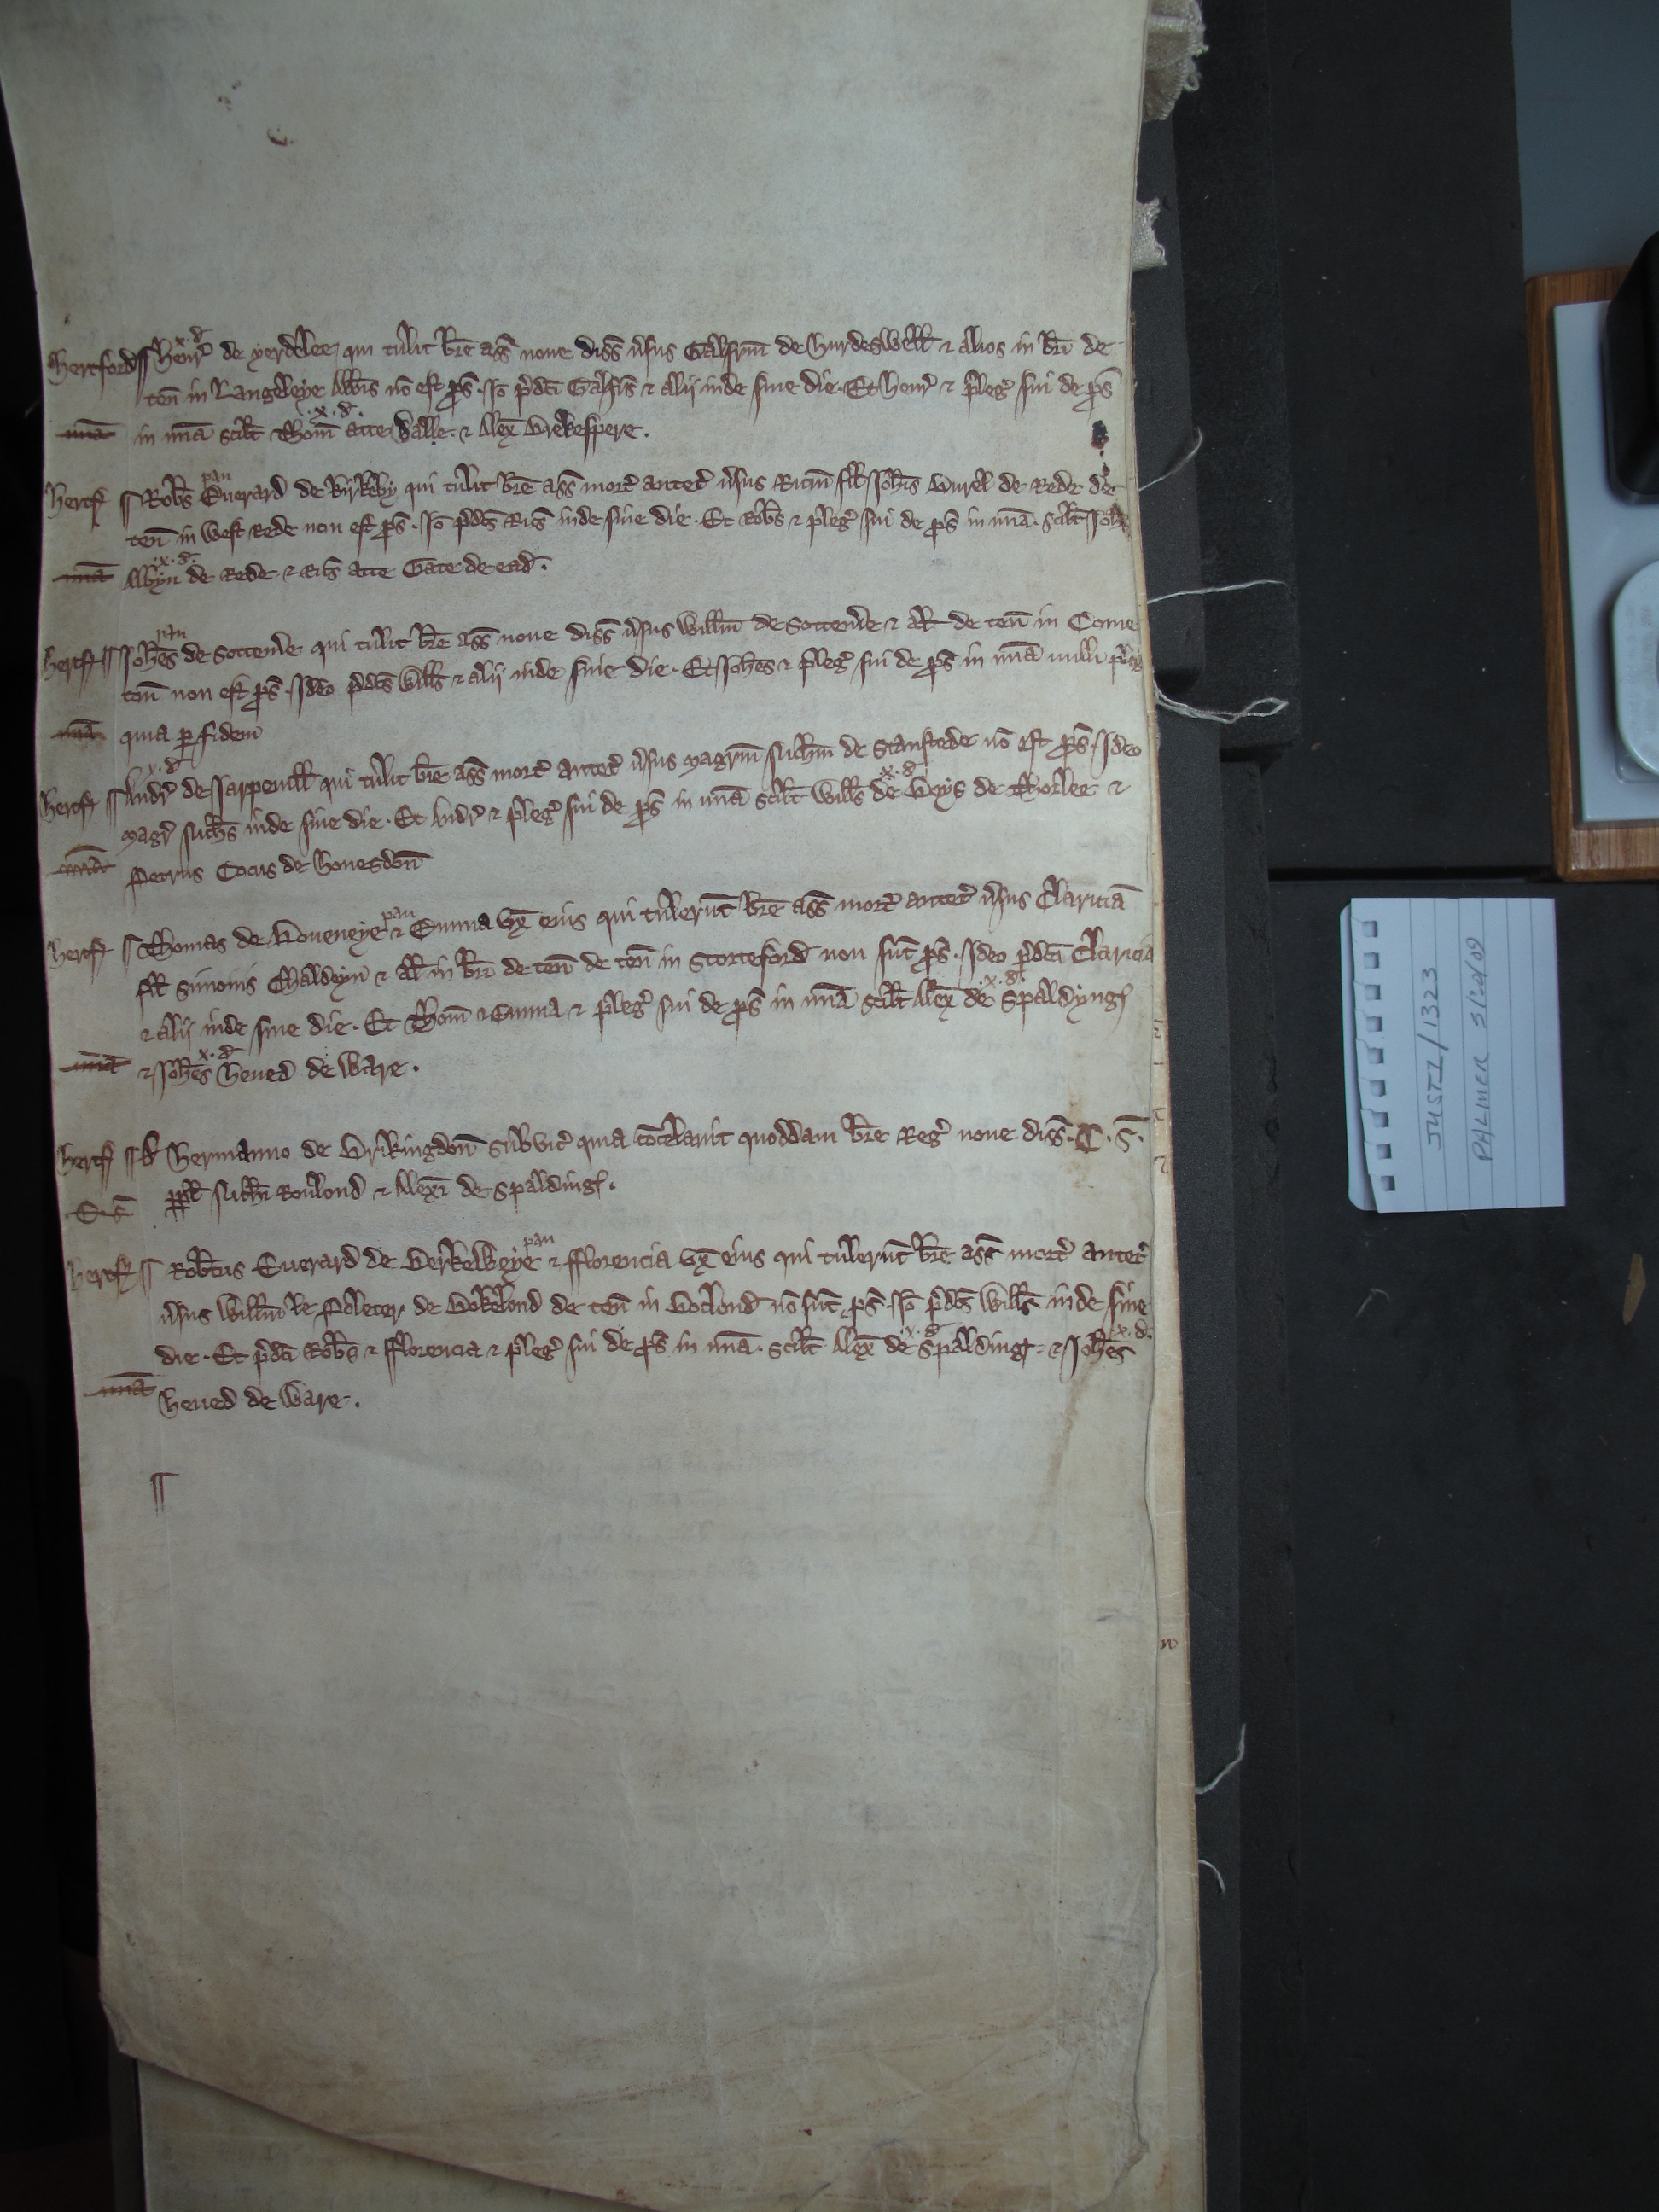 Hertford ∬ Henr̄ de Yerdelee qui tulit br̄e ass̄ noue diss̄ v̄sus Galfrm̄ de Hurdeswell̄ & alios in br̄i de
x. d
ten̄ in Langeleye Abb̄is nō est p̄s. Iō p̄dc̄i Galfr̄s & alij inde sine die. Et Henr̄ & pleḡ sui de p̄s
mīa in mīa scil̄t Thom̄ atte Halle & Alex̄ Brekespere.
x. d.
Hertf ∬ Rob̄s Euerard de Kyrkeby qui tulit br̄e ass̄ mort̄ antec̄ v̄sus Ricm̄ fil̄ Joh̄is Burel de Rede de
pau
ten̄ in West Rede non est p̄s. Iō p̄dc̄s Ric̄s inde sine die. Et Rob̄s & pleḡ sui de p̄s in mīa. scil̄t Joh̄
mīa Albyn de Rede & Ric̄s atte Gate de ead̄.
x. d.
Hertf ∬ Joh̄es de Sottewe qui tulit br̄e ass̄ noue diss̄ v̄sus Will̄m de Sottewe & al̄ de ten̄ in Come
pau
ton̄ non est p̄s. Ideo p̄dc̄s Will̄s & alij inde sine die. Et Joh̄es & pleḡ sui de p̄s in mīa nulli pleḡ
mīa quia p̱ fidem
Hertf ∬ Andr̄ de Sarpenill̄ qui tulit br̄e ass̄ mort̄ antec̄ v̄sus Magrm̄ Nich̄m de Stanstede nō est p̄s. Ideo
x. d
Magr̄ Nich̄s inde sine die. Et Andr̄ & pleḡ sui de p̄s in mīa scil̄t Will̄s de Beys de Thorlee &
x. d
mīa Petrus Cocus de Honesdon̄
Hertf ∬ Thomas de Boueneye & Emma vx̄ eius qui tulerūt br̄e ass̄ mort̄ antec̄ v̄sus Clariciā
pau
fil̄ Simonis Chaldeyn & al̄ in br̄i de ten̄ de ten̄ in Storteford non sūt p̄s. Ideo p̄dc̄i Claricia
& alij inde sine die. Et Thom̄ & Emma & pleḡ sui de p̄s in mīa scil̄t Alex̄ de Spaldyng
x. d.
mīa & Joh̄es Heued de Ware.
x. d
Hertf ∬ D Hermanno de Brikingdon̄ Subvic̄ quia cōcelauit quoddam br̄e Reḡ noue diss̄. C. s̄.
C. s̄ pp̱l Nich̄m Roulond & Alexr̄ de Spalding.
Hertf ∬ Robtus Euerard de Berkelweye & Fflorencia vx̄ eius qui tulerūt br̄e ass̄ mort̄ antec̄
pau
v̄sus Will̄m le Poleter de Bokelond de ten̄ in Boclond nō sūt p̄s. Iō p̄dc̄s Will̄s inde sine
die. Et p̄dc̄i Rob̄s & Fflorencia & pleḡ sui de p̄s in mīa. scil̄t Alex̄ de Spalding & Joh̄es
x. d x. d.
mīa Heued de Ware.
∬
JUST1/1323
PALMER 5/10/09